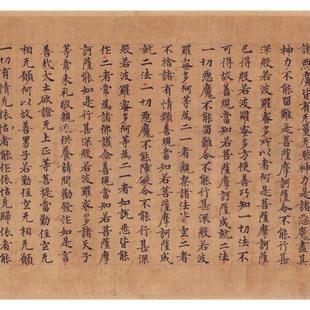 諸惡魔皆有无量无邊神力是諸惡魔盡其
神力不能留難是菩薩摩訶薩令不能行甚
深般若波羅蜜多所以者何是菩薩摩訶薩
已得般若波羅蜜多方便善巧知一切法不
可得故善現當知若菩薩摩訶薩成就二法
一切惡魔不能留難令不能行甚深般若波
羅蜜多何等為二一者觀察諸法皆空二者
不捨諸有情類善現當知若菩薩摩訶薩成
就二法一切惡魔不能障礙令不能行甚深
般若波羅蜜多何等為二一者如說悉皆能
作二者常為諸佛護念善現當知若菩薩摩
訶薩能如是行甚深般若波羅蜜多諸天子
等常來礼敬親近供養請問勸發作如是言
善哉大士欲證无上正等菩提當勤住空无
相无願何以故善男子若勤住空无相无願
一切有情无依怙者能作依怙无歸依者能